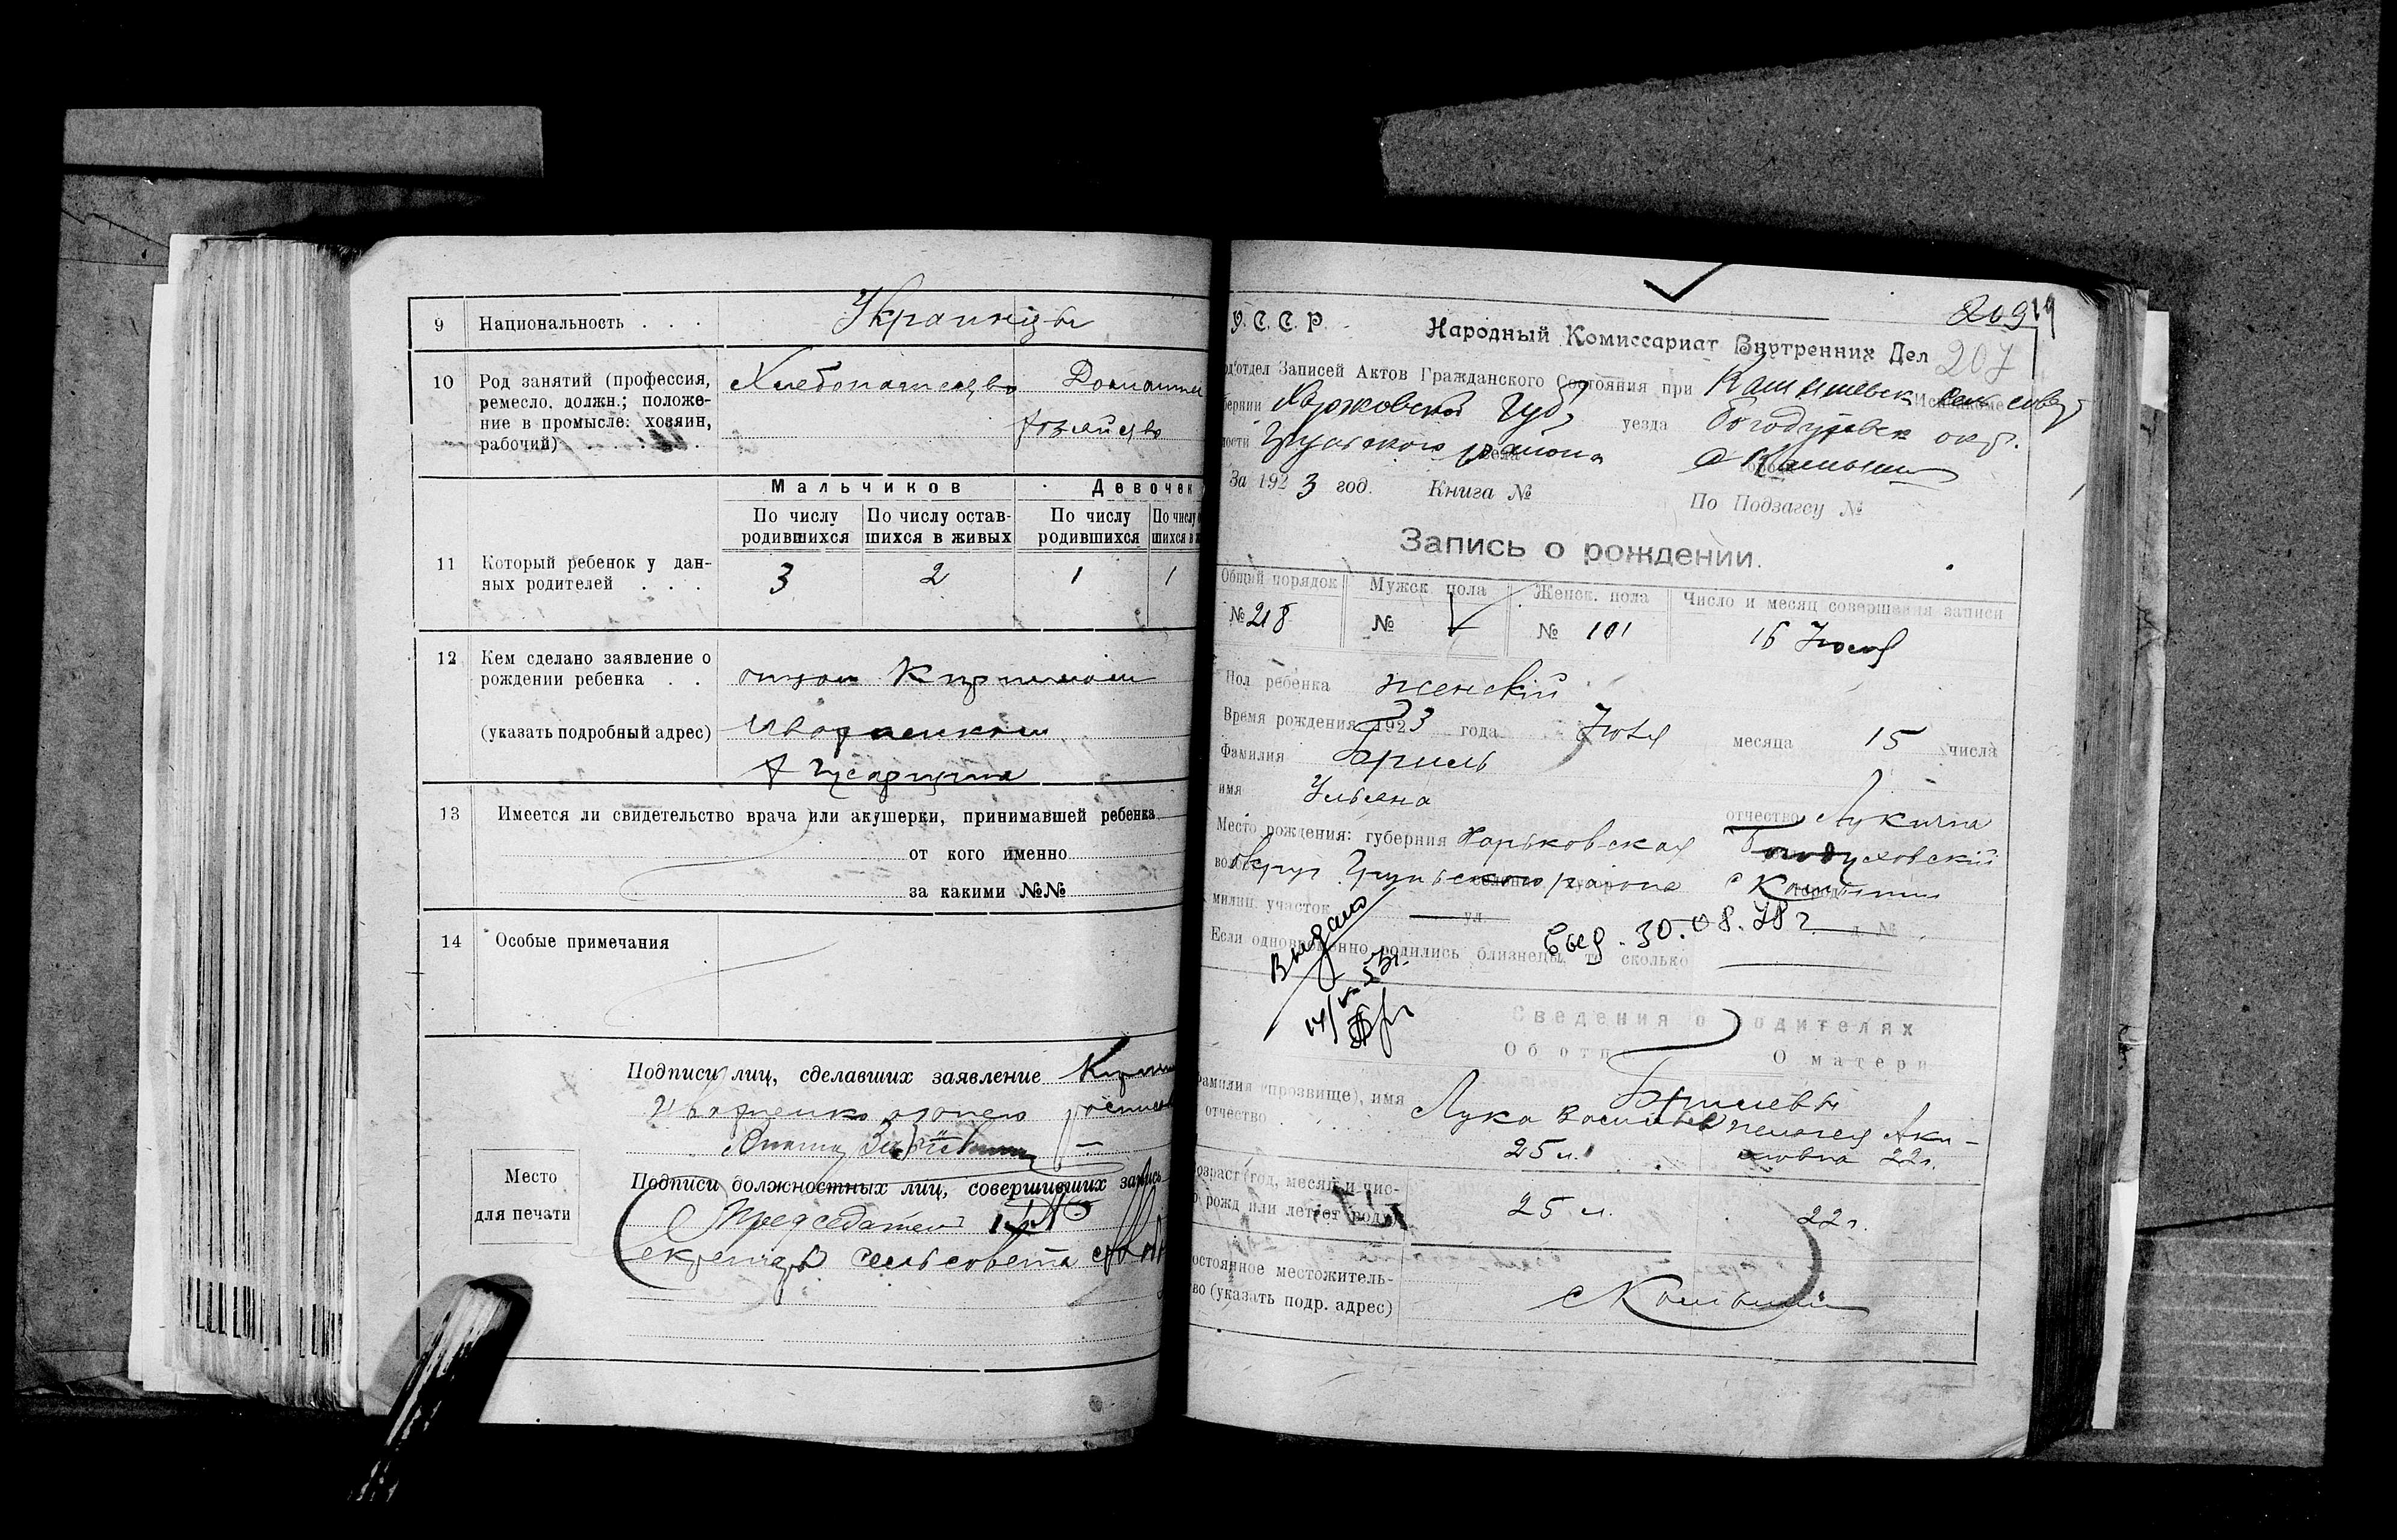 9 Национальность . . . Украинцы
10 Род занятий (профессия,
ремесло, должн.; положе-
ние в промысле: хозяин,
рабочий) . . . . .
Хлебопашество Домашнее
хозяйство
Мальчиков Девочек
По числу родившихся
По числу остав-шихся в живых
По числу родившихся
По числу
11 Который ребенок у дан-
ных родителей . . .
3 2 1 1
12 Кем сделано заявление о
рождении ребенка . .
(указать подробный адрес)
отцом
13 Имеется ли свидетельство врача или акушерки, принимавшей ребенка
от кого именно
за какими №№
14 Особые примечания
Подписи лиц, сделавших заявление
Место
для печати
Подписи должностных лиц, совершивших запись
Председатель
Секретарь сельсовета
209
207
У. С. С. Р. Народный Комиссариат Внутренних Дел
Подотдел Записей Актов Гражданского Состояния при
Харковской губ. уезда Богодуховск окр.
района с Камыши
За 1923 год. Книга № По Подзагсу №
Запись о рождении.
Общий порядок Мужск. пола Женск. пола Число и месяц совершения записи
№ 218 № № 101 16 Июля
Пол ребенка женскій
Время рождения 1923 года Июля месяца 15 числа
Фамилия Бриль
имя Ульяна отчество Лукична
Место рождения: губерния Харьковская Богодуховскій
округ района с Камыши
милиц. участок ул. д. №
Выдано
Свед. 30.08.78 г.
Если одновременно родились близнецы, то сколько
Сведения о родителях
Об отце О матери
Фамилия (прозвище), имя
отчество . . . . .
Брилевы
Лука Васильев Пелагея Аки-
мовна 22 г.
25 л.
Возраст (год, месяц и чис-
ло рожд или лет от роду)
25 л. 22 г.
Постоянное местожитель-
во (указать подр. адрес)
с Камыши